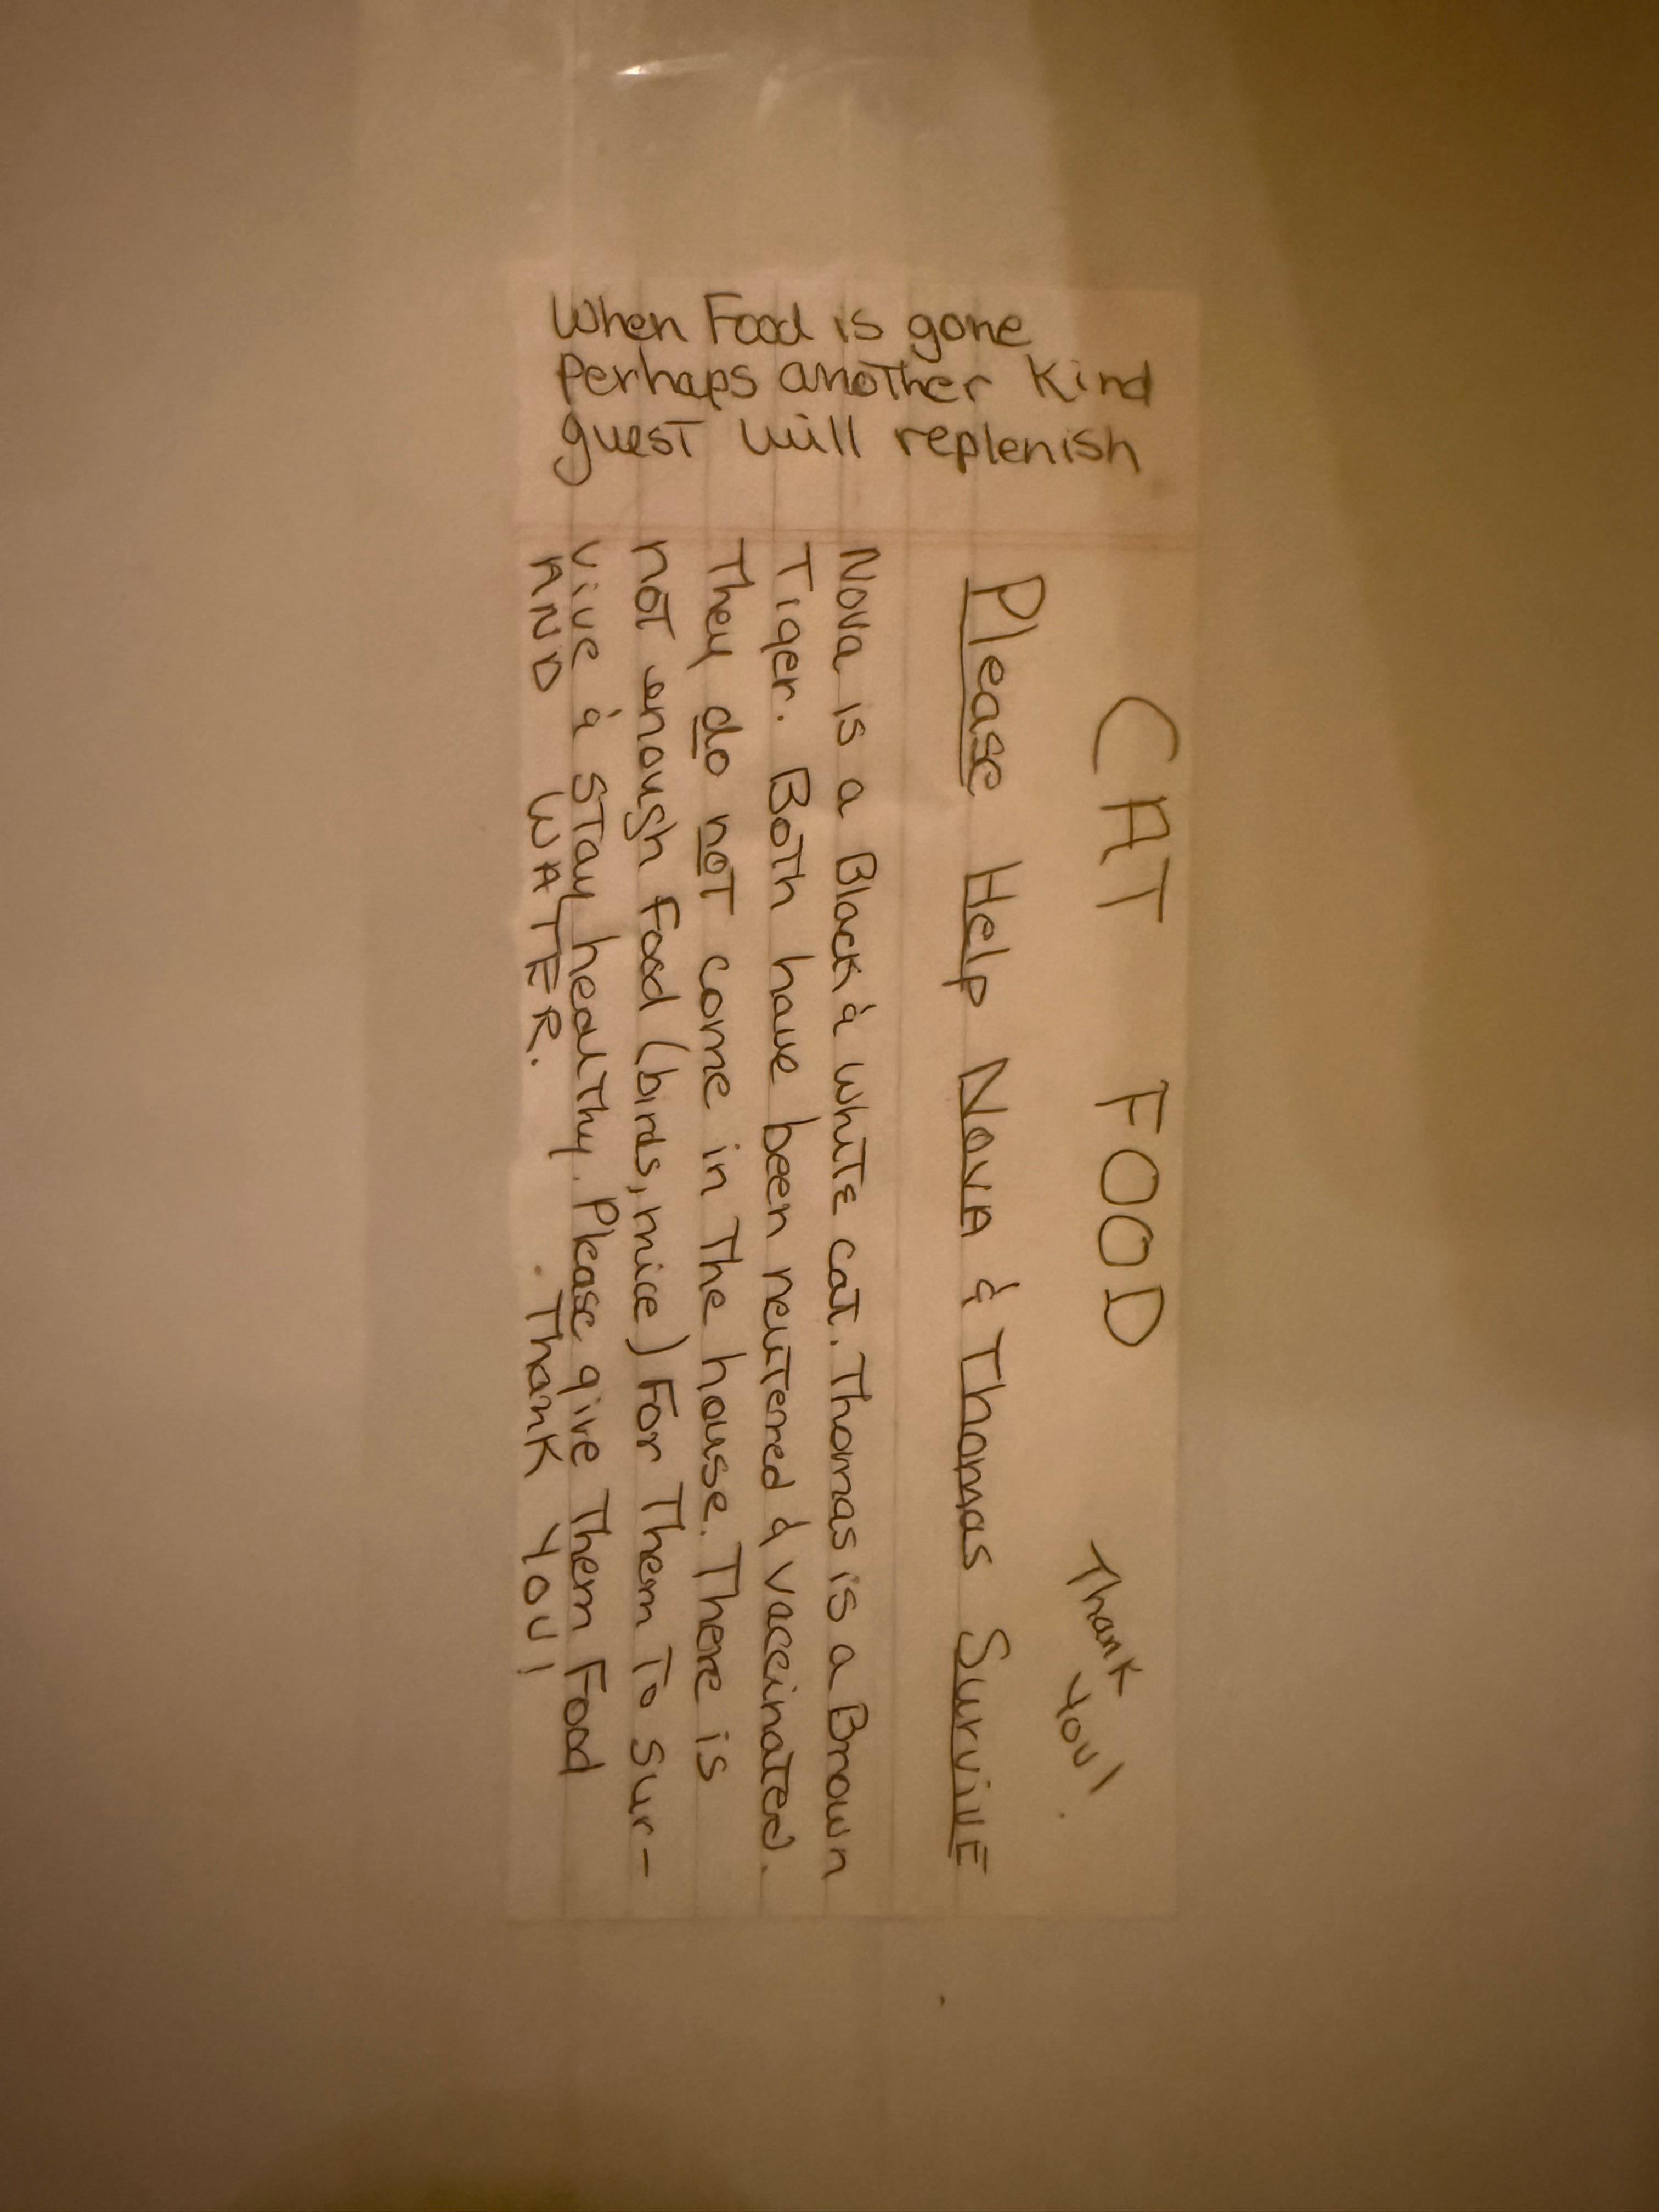 When Food is gone
Perhaps another Kind
guest will replenish
CAT FOOD
Thank
You!
Please Help Nova & Thomas Survive
Nova is a Black & White cat. Thomas is a Brown
Tiger. Both have been neutered & vaccinated.
They do not come in The house. There is
not enough Food (birds, mice) For Them To sur-
vive & stay healthy. Please give Them Food
AND WATER. Thank You!